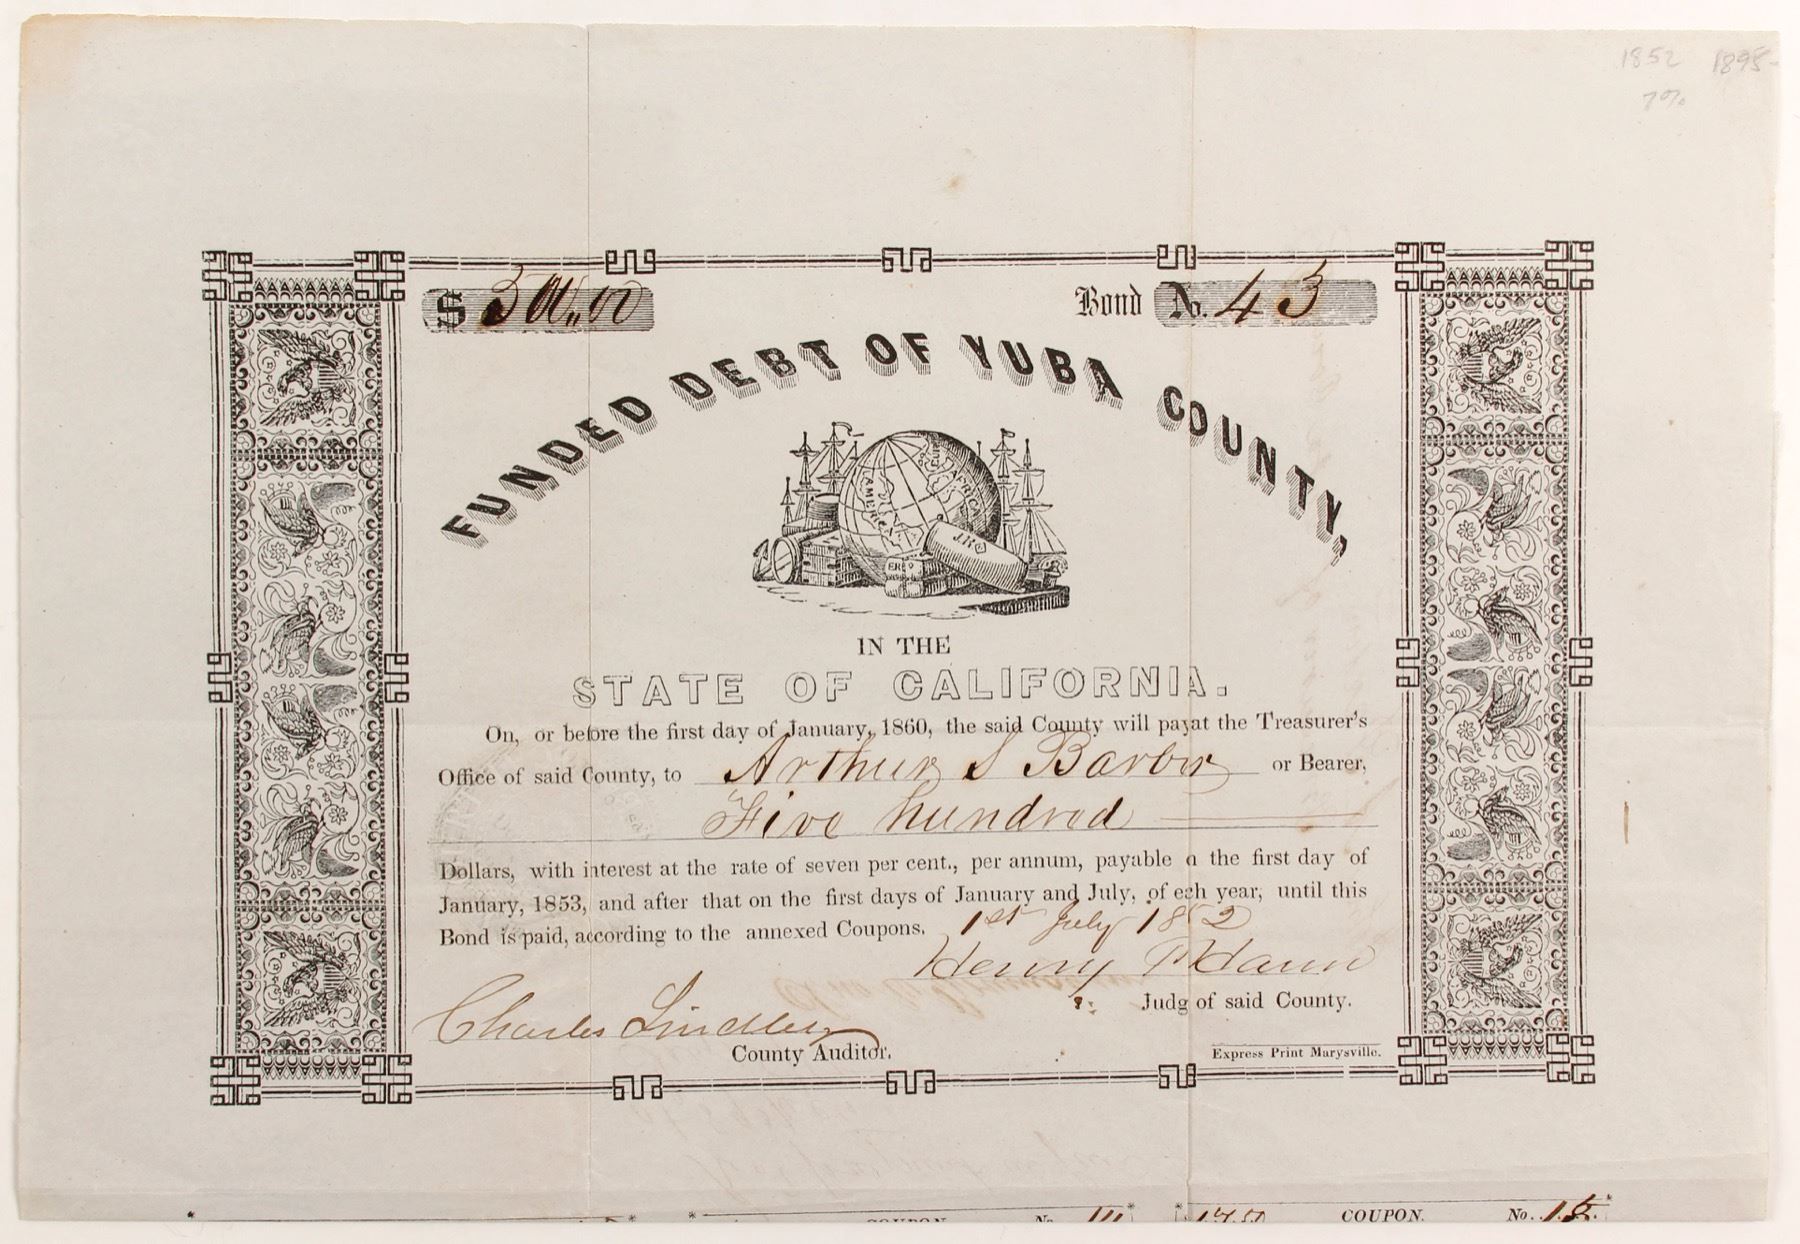 1852 1898-
7%
$ 500.00 Bond No. 43
FUNDED DEBT OF YUBA COUNTY,
Europe
AFRICA
AMERICA
J.R.
ER
IN THE
STATE OF CALIFORNIA.
On, or before the first day of January, 1860, the said County will pay at the Treasurer's
Office of said County, to Arthur S Barber or Bearer,
Five hundred
Dollars, with interest at the rate of seven per cent., per annum, payable n the first day of
January, 1853, and after that on the first days of January and July, of each year, until this
Bond is paid, according to the annexed Coupons. 1st July 1852
Henry P Haun
Judg of said County.
Charles Lindley
County Auditor.
Express Print Marysville.
COUPON No.
COUPON. No. 15